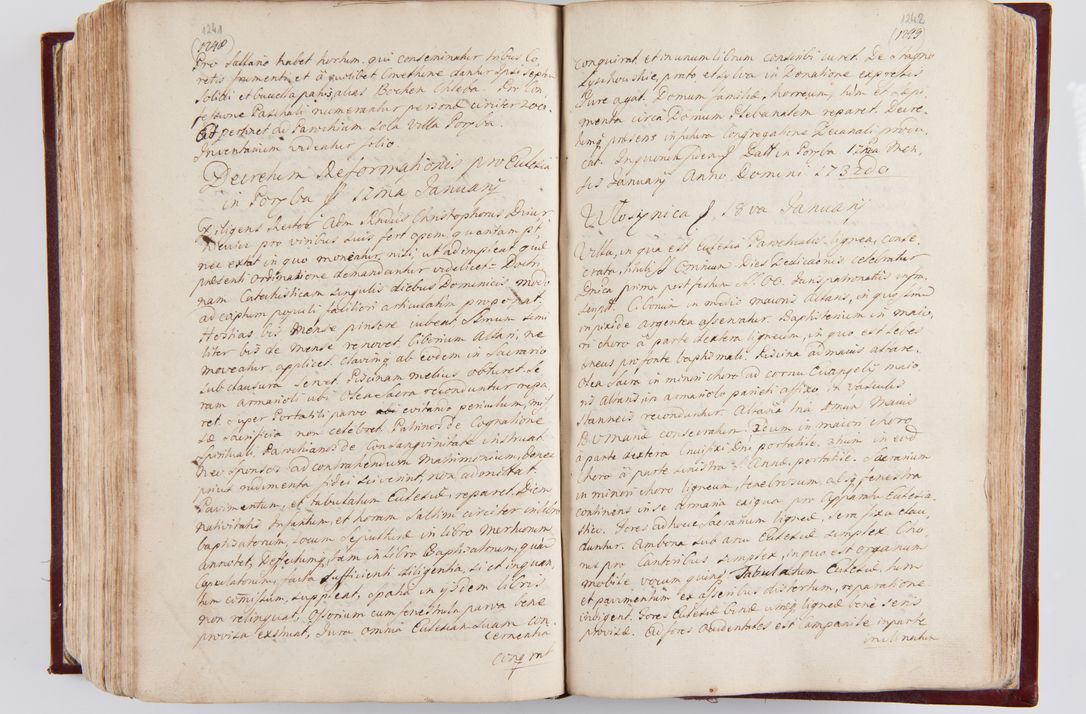 1241
1298
Pro sallario habet hortum, qui conseminatur tribus Co-
retis frumenti, et à quolibet Cmethone dantur ipsi septem
solidi et buccella panis, alias Bochen Chleba. Pro Con-
fessione Paschali numerantur personæ circiter 200.
Ad pertinet ad Parochiam sola Villa Poryba.
Inventarium videatur folio
Decretum Reformationis pro Ecclesia
in Poryba ff 12ma Januarij
Diligens Rector Adm Rndus Christophorus
pro viribus suis fert opem quantam pt,
nec extat in quo moneatur, nisi, ut adimpleat quæ
præsenti Ordinatione demandantur videlicet = Doctri-
nam Catechisticam singulis diebus Dominicis modo
ad captum populi faciliori articulatim proponat,
Hostias bis Mense pinsere iubeat, Ssmum simi-
liter bis de mense renovet. Ciborium Altari, ne
moveatur applicet. Clavim ab eodem in Sacrario
sub clausura servet. Piscinam melius obturet. Se-
ram armarioli ubi Olea sacra reconduntur repa-
ret. Super Portatili parvo evitando periculum, mis-
sæ sacrificia non celebret. Patrinos de Cognatione
spirituali, Parochianos de Consanguinitate instruat
nec sponsos ad contrahendum Matrimonium, donec
prius rudimenta fidei sciverint, non admittat.
Pavimentum, et tabulatum Ecclesiæ, reparet. Diem
nativitatis Infantum, et horam saltim circiter in libro
baptizatorum, locum sepulturæ in libro Mortuorum
annotet, Deffectumq, tam in Libro Baptizatorum, quam
Copulatorum, facta sufficienti diligentia, si et in quan-
tum comissum, suppleat, spatia in ijsdem libris
non relinquat, Ossorium cum fenestrula parva bene
provisa exstruat, Iura omnia Ecclesiam suam con-
cernentia
conqrat
1242
1299
conquirat, et in unum librum conscribi curet. De stagno
Lyszkowskie, prato, et sylva in Donatione expressis
Iure agat. Domum familiæ, horreum, tum et sepi-
menta circa Domum Plebanalem reparet. Decre-
tumq præsens in futura Congregatione Decanali produ-
cat. Datt in Poryba 12ma Men-
sis Januarij Anno Domini 1732do
Włosynica ff. 18va Januarij
Villa, in qua est Ecclesia Parochialis lignea, conse-
crata, tituli ff Omnium. Dies Dedicationis celebratur
Dnica prima post festum SS. OO. Iuris patronatus
Ciborium in medio maioris Altaris, in quo Ssmum
in pixide argentea asservatur. Baptisterium in maio-
ri choro à parte dextera ligneum, in quo est lebes
æneus pro fonte baptismali. Piscina ad maius altare.
Olea sacra in minori choro ad cornu Evangelij maio-
ris altaris in armariolo parieti affixo, & vasculis
stanneis reconduntur. Altaria tria 1mum Maius
Romanæ consecratum. 2dum in maiori choro
à parte dextera Crucifixi Dni portatile. 3tium in eod
choro à parte sinistra S. Annæ, portatile. Sacrarium
in minori choro ligneum, tenebrosum, absq fenestra
continens in se armaria exigua pro Apparatu Ecclesia-
stico. Fores ad hocce sacrarium ligneæ, sera fixa clau-
duntur. Ambona sub arcu Ecclesiæ simplex. Cho-
rus pro Cantoribus simplex, in quo est organum
mobile vocum quinq. Tabulatum Ecclesiæ, tum
et pavimentum ex asseribus disjectum, reparatione
indigent. Fores Ecclesiæ binæ utræq ligneæ bene seris
provisæ. Ad fores Occidentales est Campanile in parte
inclinatum